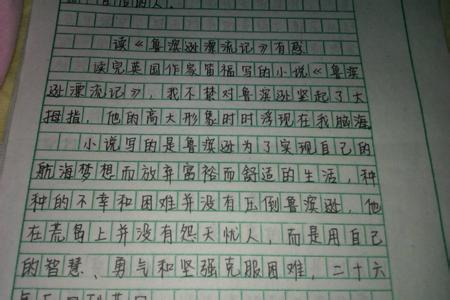 的人。
读《鲁滨逊漂流记》有感
读完英国作家笛福写的小说《鲁滨
逊漂流记》，我不禁对鲁滨逊竖起了大
拇指，他的高大形象时时浮现在我脑海。
小说写的是鲁滨逊为了实现自己的
航海梦想而放弃富裕而舒适的生活，种
种的不幸和困难并没有压倒鲁滨逊，他
在荒岛上并没有怨天忧人，而是用自己
的智慧、勇气和坚强克服困难，二十六